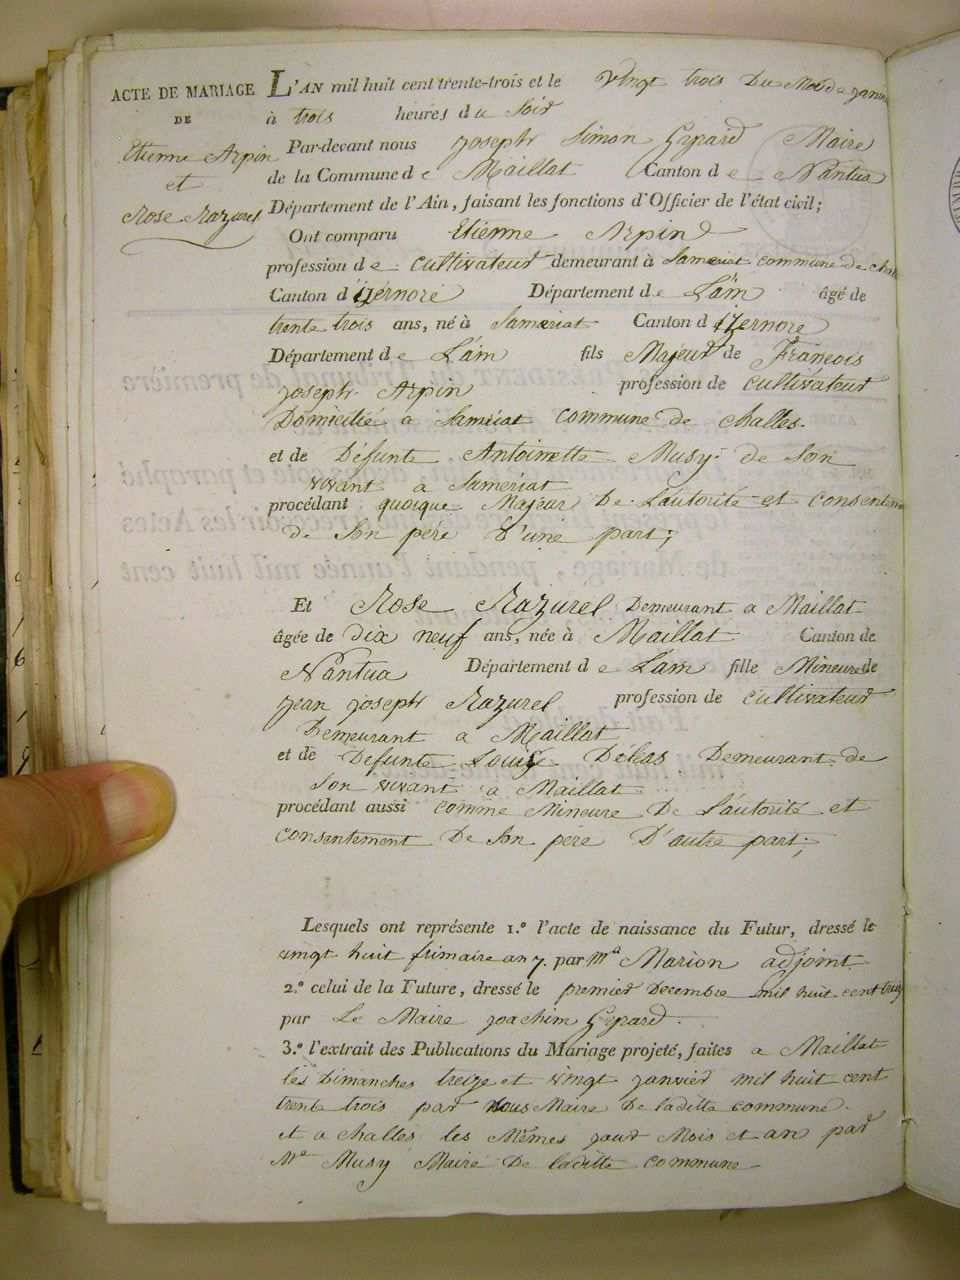 ACTE DE MARIAGE
DE
Etienne Arpin
et
Rose Razurel
L'AN mil huit cent trente-trois et le vingt trois du Mois de janv
à trois heures du soir
Par-devant nous joseph Simon Gerard Maire
de la Commune de Maillat Canton de Nantua
Département de l'Ain, faisant les fonctions d'Officier de l'état civil;
Ont comparu Etienne Arpin
profession de cultivateur demeurant à Sameriat commune de chal
Canton d'izernore Département de L'ain âgé de
trente trois ans, né à Sameriat Canton d'izernore
Département de L'ain fils Majeur de Francois
joseph Arpin profession de cultivateur
Domicilié à Samériat commune de challes.
et de Défunte Antoinette Musy de son
vivant à Sameriat
procédant quoique Majeur De L'autorité et consentem
de son père d'une part;
Et Rose Razurel Demeurant a Maillat
âgée de dix neuf ans, née à Maillat Canton de
Nantua Département de L'ain fille Mineure de
jean joseph Razurel profession de cultivateur
Demeurant a Maillat
et de Defunte Demeurant de
son vivant a Maillat
procédant aussi comme Mineure De L'autorité et
consentement De son père D'autre part;
Lesquels ont représente 1.º l'acte de naissance du Futur, dressé le
vingt huit frimaire an 7. par Mª Marion adjoint
2.º celui de la Future, dressé le premier Decembre mil huit cent treize
par Le Maire joachim Gerard.
3.º l'extrait des Publications du Mariage projeté, faites a Maillat
les Dimanches treize et vingt janvier mil huit cent
trente trois par nous Maire De laditte commune.
et a challes les Mêmes jour Mois et an par
Mª Musy Maire De laditte commune